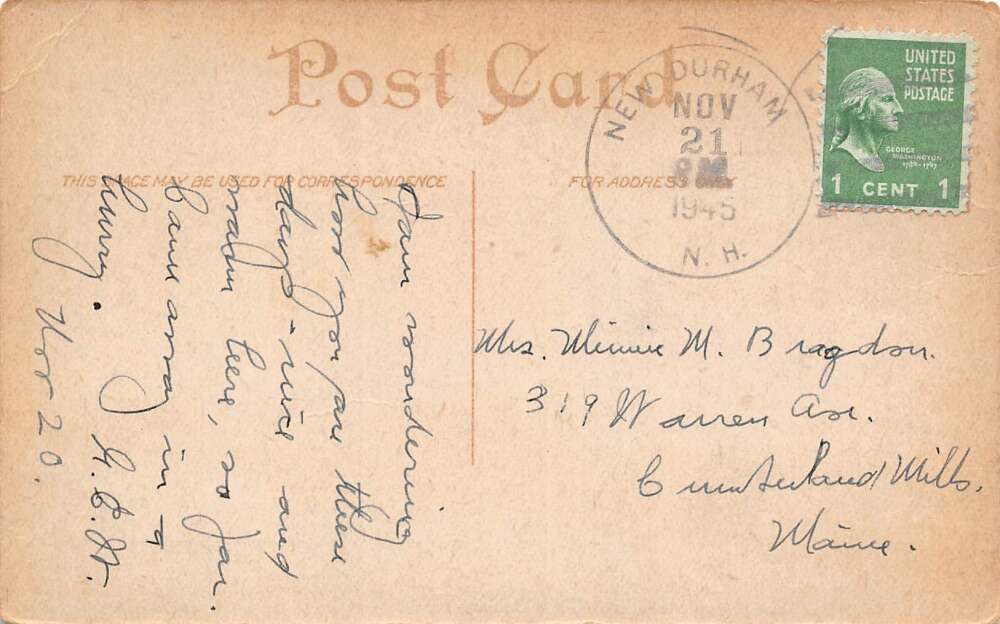 Post Card
THIS SPACE MAY BE USED FOR CORRESPONDENCE
FOR ADDRESS ONLY
NEW DURHAM
NOV
21
1945
N. H.
UNITED
STATES
POSTAGE
GEORGE
WASHINGTON
1 CENT 1
Mrs. Minnie M. Bragdon.
319 Warren Ave.
Cumberland Mills,
Maine.
I am wondering
how you are these
days - nice and
warm here, so far.
Came away in a
hurry. G. E. H.
Nov 20.